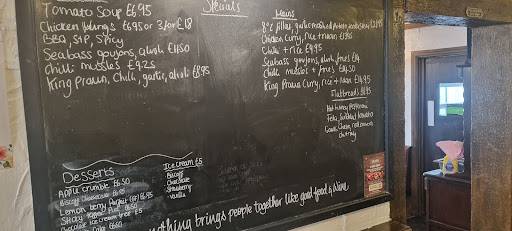 Specials
Tomato Soup £6.95
Chicken Wings £6.95 or 3 for £18
BBQ, S+P, Spicy
Seabass goujons, aioli £7.50
Chilli mussels £9.25
King Prawn, Chilli, garlic, aioli £8.95
Mains
8oz fillet, garlic mushrooms,
Chicken Curry, rice + naan
Chilli + rice £14.95
Seabass goujons, aioli, fries £14
Chilli mussels + fries £14.50
King Prawn Curry, rice + naan £14.95
Flatbreads
Hot honey Pepperoni
Feta, Sundried tomato
Goats Cheese, red onion
chutney
Desserts
Apple crumble £6.50
Biscoff Cheesecake £6.95
Lemon berry Parfait (GF) £6.95
Sticky Toffee Pud £6.50
Chocolate ice cream tree £5
Ice cream £5
Biscoff
Chocolate
Strawberry
Vanilla
nothing brings people together like good food & wine